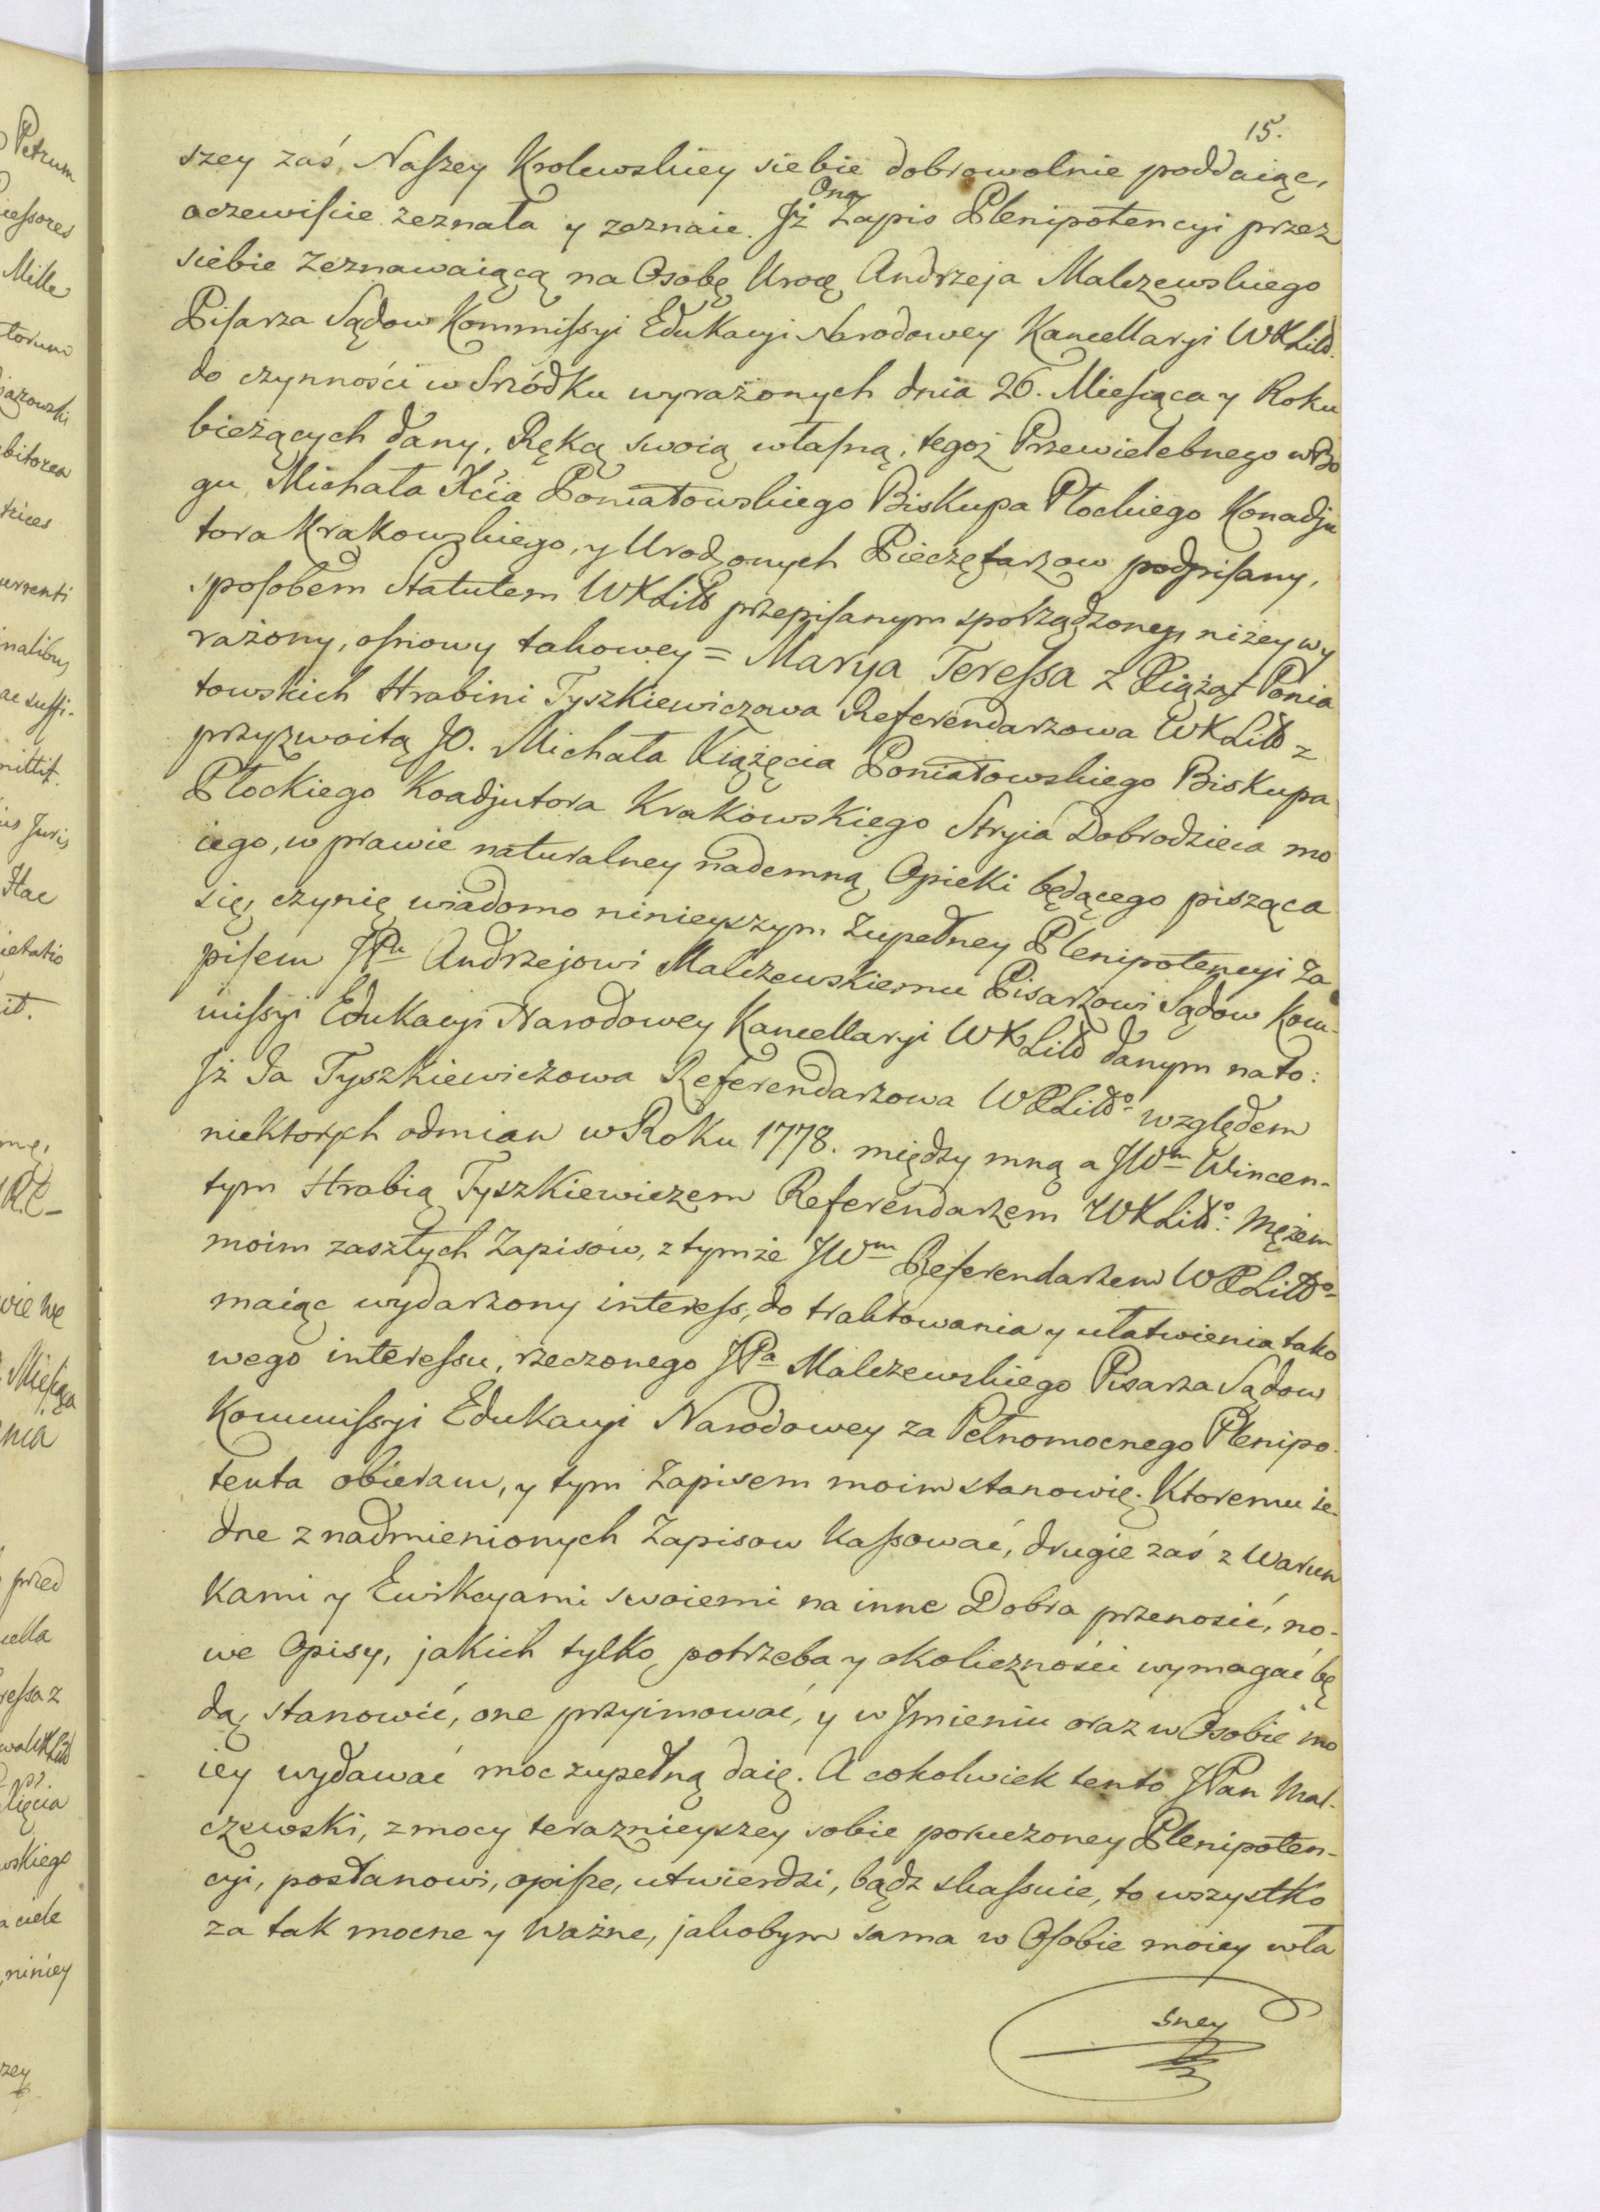 15.
szey zaś, Naſzey Krolewskiey siebie dobrowolnie poddaiąc,
oczewiſcie zeznała y zeznaie. Jż Ona Zapis Plenipotencyi przez
siebie Zeznawaiącą na Osobę Uroę Andrzeja Malczewskiego
Piſarza Sądow Kommiſsyi Edukacyi Narodowey Kancellaryi WXLitt.
do czynności w Srżódku wyrażonych dnia 26. Mieſiąca y Roku
bieżących dany, Ręką swoią właſną, tegoż Przewielebnego w Bo
gu Michała Xcia Poniatowskiego Biskupa Płockiego Konadju
tora Krakowskiego, y Urodzonych Pieczętarzow podpiſany,
spoſobem Statutem WXLitt przepiſanym sporządzoney, niżey wy
rażony, oſnowy takowey = Marya Tereſsa z Xiążąt Ponia
towskich Hrabini Tyszkiewiczowa Referendarzowa WXLitt z
przyzwoitą JO. Michała Xiążęcia Poniatowskiego Biskupa
Płockiego Koadjutora Krakowskiego Stryia Dobrodzieia mo
iego, w prawie naturalney nademną Opieki będącego pisząca
się, czynię wiadomo ninieyszym Zupełney Plenipotencyi Za
piſem JPu Andrzejowi Malczewskiemu Pisarzowi Sądow Kom-
miſsyi Edukacyi Narodowey Kancellaryi WXLitt danym na to:
Jż Ja Tyszkiewiczowa Referendarzowa WXLitto względem
niektorych odmian w Roku 1778. między mną a JWm Wincen-
tym Hrabią Tyszkiewiczem Referendarzem WXLitto: Mężem
moim zaszłych Zapisów, z tymże JWm Referendarzem WXLitto
maiąc wydarzony intereſs, do traktowania y ułatwienia tako
wego intereſsu, rzeczonego JPa Malczewskiego Pisarza Sądow
Kommiſsyi Edukacyi Narodowey za Pełnomocnego Plenipo
tenta obieram, y tym Zapisem moim stanowię. Ktoremu ie-
dne z nadmienionych Zapisow kaſsować, drugie zaś z Warun
kami y Ewikcyami swoiemi na inne Dobra przenosić, no-
we Opisy, jakich tylko potrzeba y okoliczności wymagać bę
dą, stanowić, one przyimować, y w Jmieniu oraz w Osobie mo
iey wydawać moc zupełną daię. A cokolwiek tento JPan Mal-
czewski, z mocy teraznieyszey sobie poruczoney Plenipoten-
cyi, postanowi, opiſze, utwierdzi, bądz skaſsuie, to wszystko
za tak mocne y Ważne, jakobym sama w Oſobie moiey wła
sney